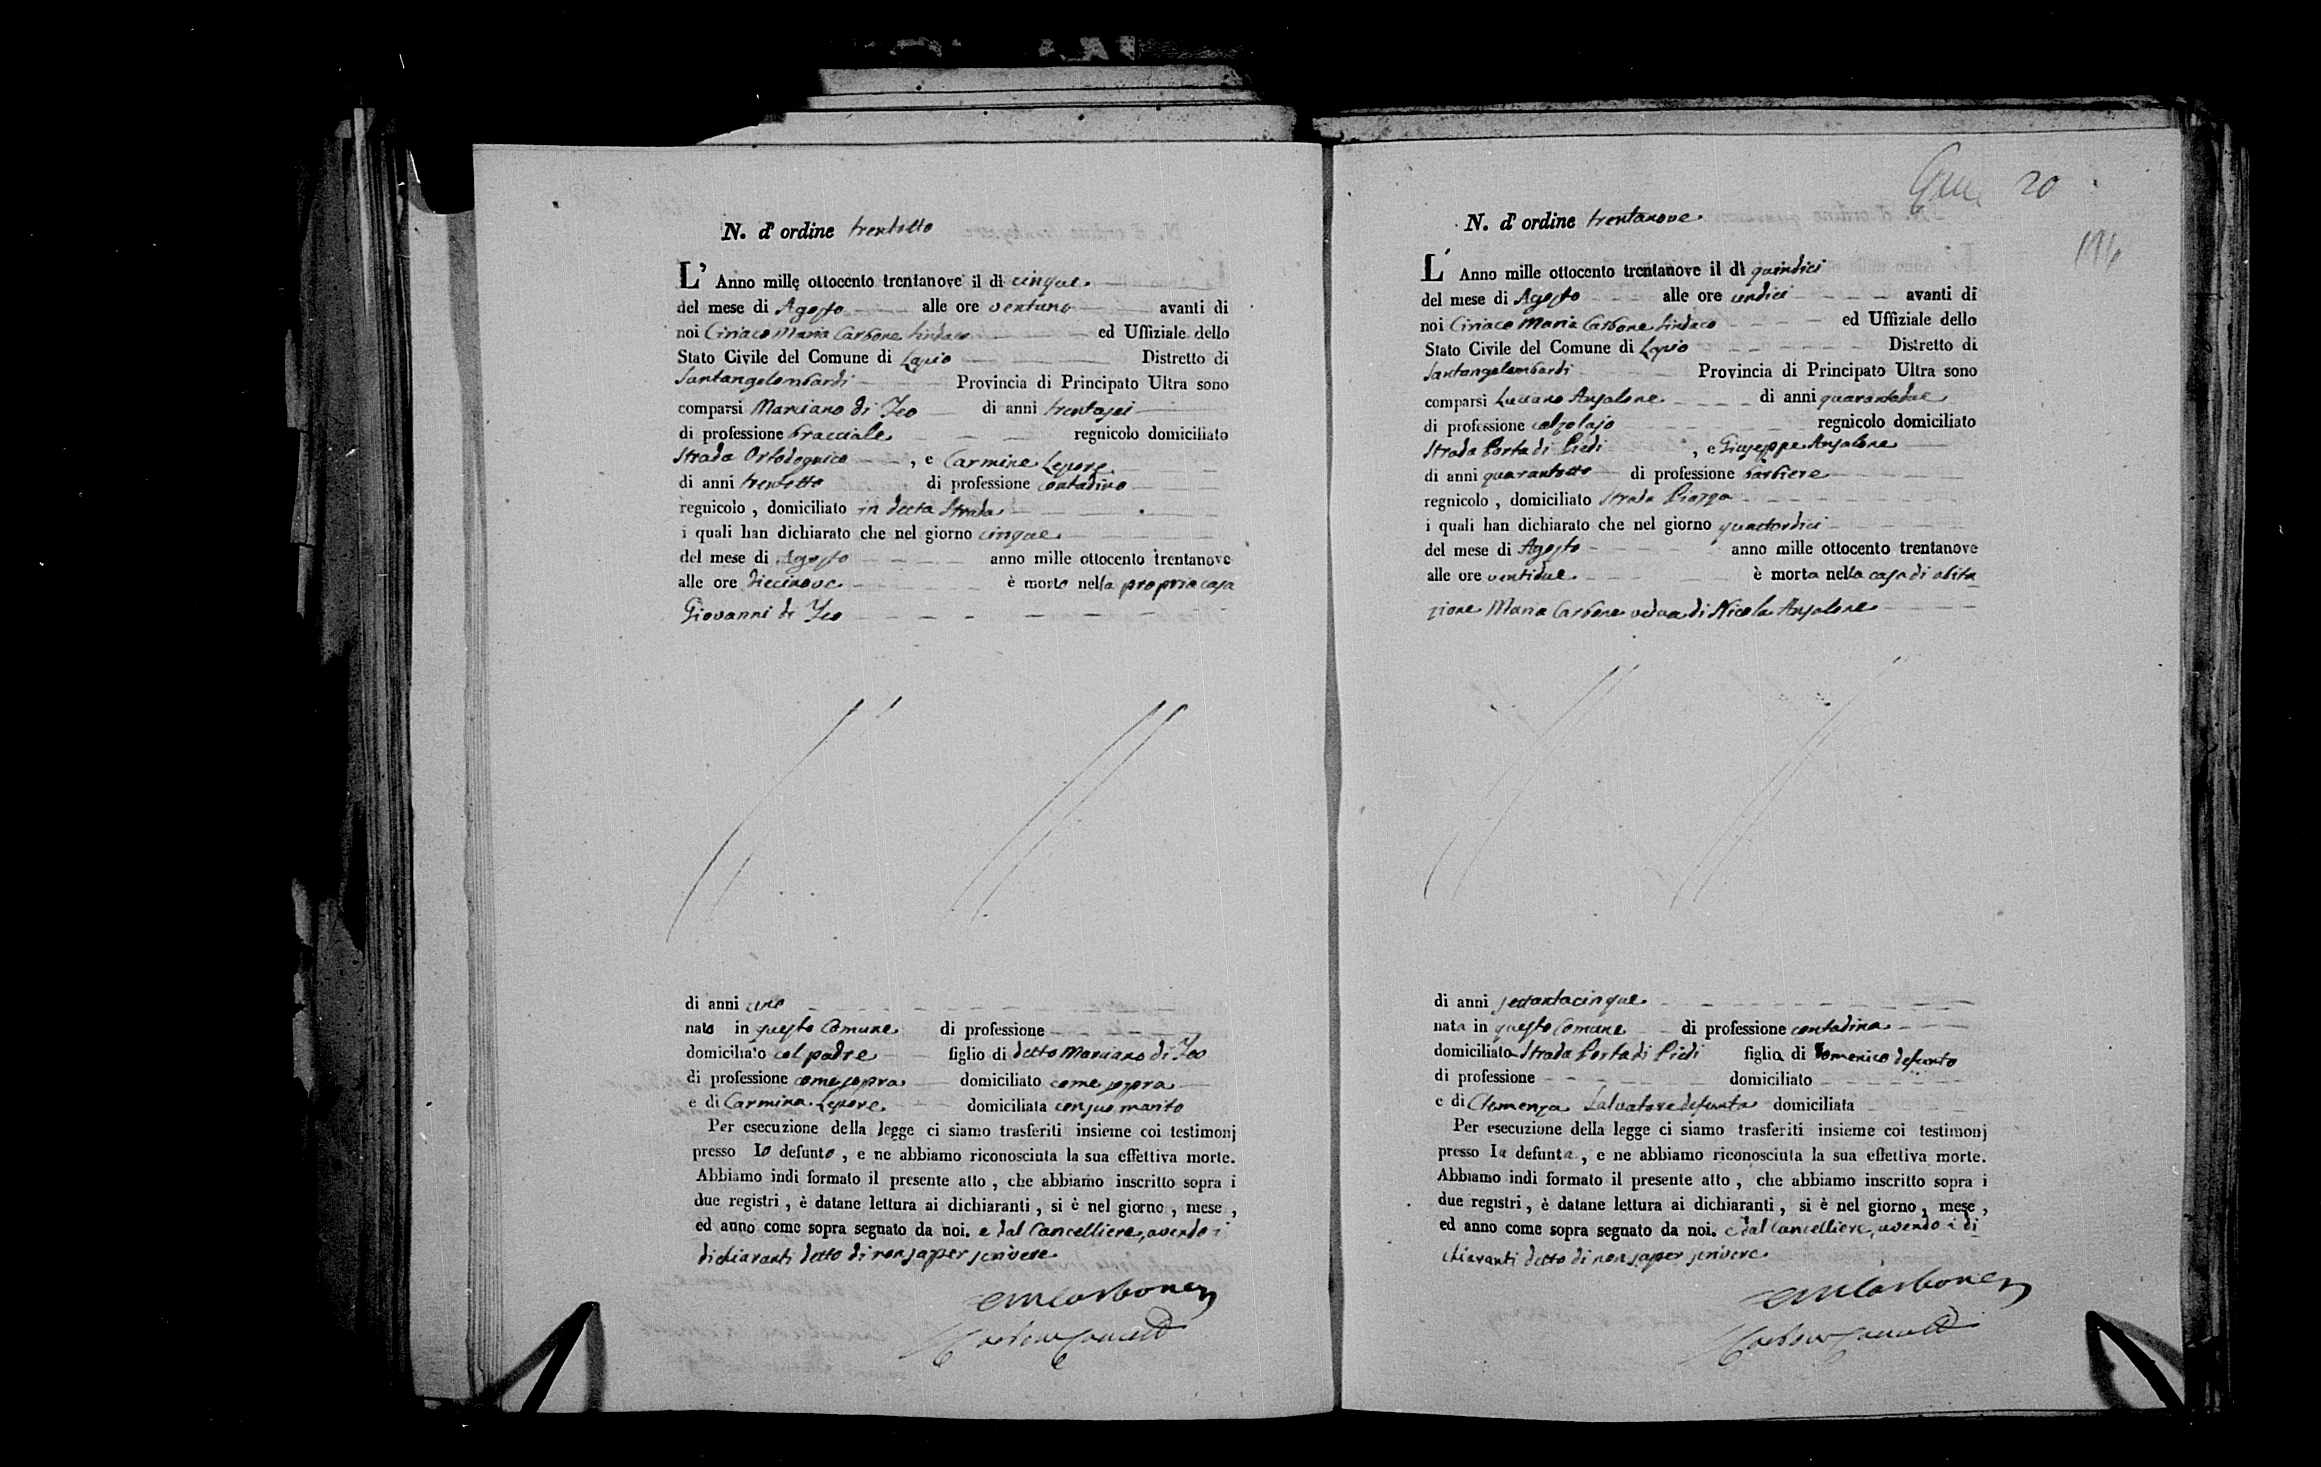 N. d' ordine trentotto
L' Anno mille ottocento trentanove il di cinque
del mese di Agosto alle ore ventuno avanti di
noi Ciriaco Maria Carbone Sindaco ed Uffiziale dello
Stato Civile del Comune di Lapio Distretto di
Santangelombardi Provincia di Principato Ultra sono
comparsi Marciano di Feo di anni trentasei
di professione bracciale regnicolo domiciliato
Strada , e Carmine Lepore
di anni trentotto di professione contadino
regnicolo , domiciliato in detta Strada
i quali han dichiarato che nel giorno cinque
del mese di Agosto anno mille ottocento trentanove
alle ore diecinove è morto nella propria casa
Giovanni di Feo
di anni uno
nato in questo Comune di professione
domiciliato col padre figlio di detto Marciano di Feo
di professione come sopra domiciliato come sopra
e di Carmina Lepore domiciliata con suo marito
Per esecuzione della legge ci siamo trasferiti insieme coi testimonj
presso lo defunto , e ne abbiamo riconosciuta la sua effettiva morte.
Abbiamo indi formato il presente atto , che abbiamo inscritto sopra i
due registri , è datane lettura ai dichiaranti , si è nel giorno , mese ,
ed anno come sopra segnato da noi. e dal Cancelliere, avendo i
dichiaranti detto di non saper scrivere
CMCarbone
20
194
N. d' ordine trentanove
L' Anno mille ottocento trentanove il di quindici
del mese di Agosto alle ore undici avanti di
noi Ciriaco Maria Carbone Sindaco ed Uffiziale dello
Stato Civile del Comune di Lapio Distretto di
Santangelombardi Provincia di Principato Ultra sono
comparsi Luciano Anzalone di anni quarantadue
di professione calzolajo regnicolo domiciliato
Strada Porta di Piedi , e Giuseppe Anzalone
di anni quarantotto di professione barbiere
regnicolo , domiciliato Strada Piazza
i quali han dichiarato che nel giorno quattordici
del mese di Agosto anno mille ottocento trentanove
alle ore ventidue è morta nella casa di abita
zione Maria Carbone vedova di Nicola Anzalone
di anni settantacinque
nata in questo Comune di professione contadina
domiciliata Strada Porta di Piedi figlia di Domenico defunto
di professione domiciliato
e di Clemenza Salvatore defunta domiciliata
Per esecuzione della legge ci siamo trasferiti insieme coi testimonj
presso la defunta , e ne abbiamo riconosciuta la sua effettiva morte.
Abbiamo indi formato il presente atto , che abbiamo inscritto sopra i
due registri , è datane lettura ai dichiaranti , si è nel giorno , mese ,
ed anno come sopra segnato da noi. e dal Cancelliere, avendo i di
chiaranti detto di non saper scrivere
CMCarbone